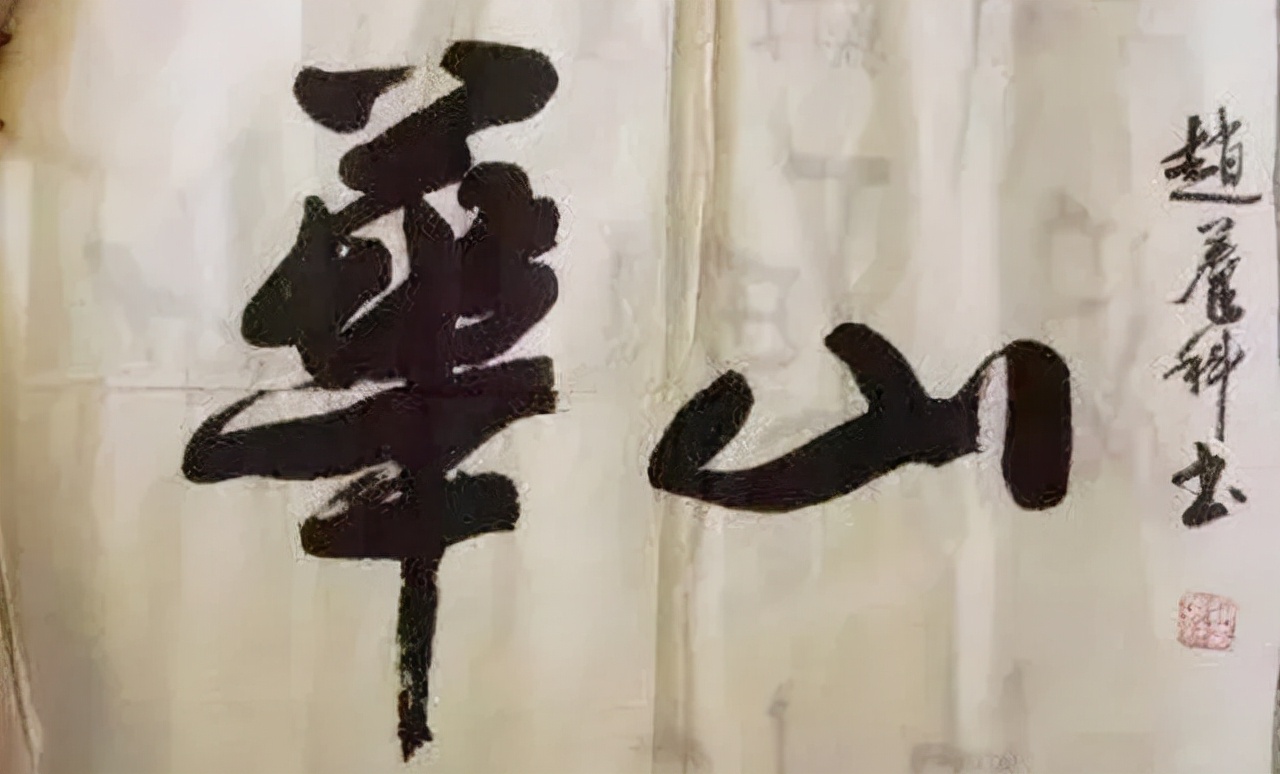 華山
趙養科書